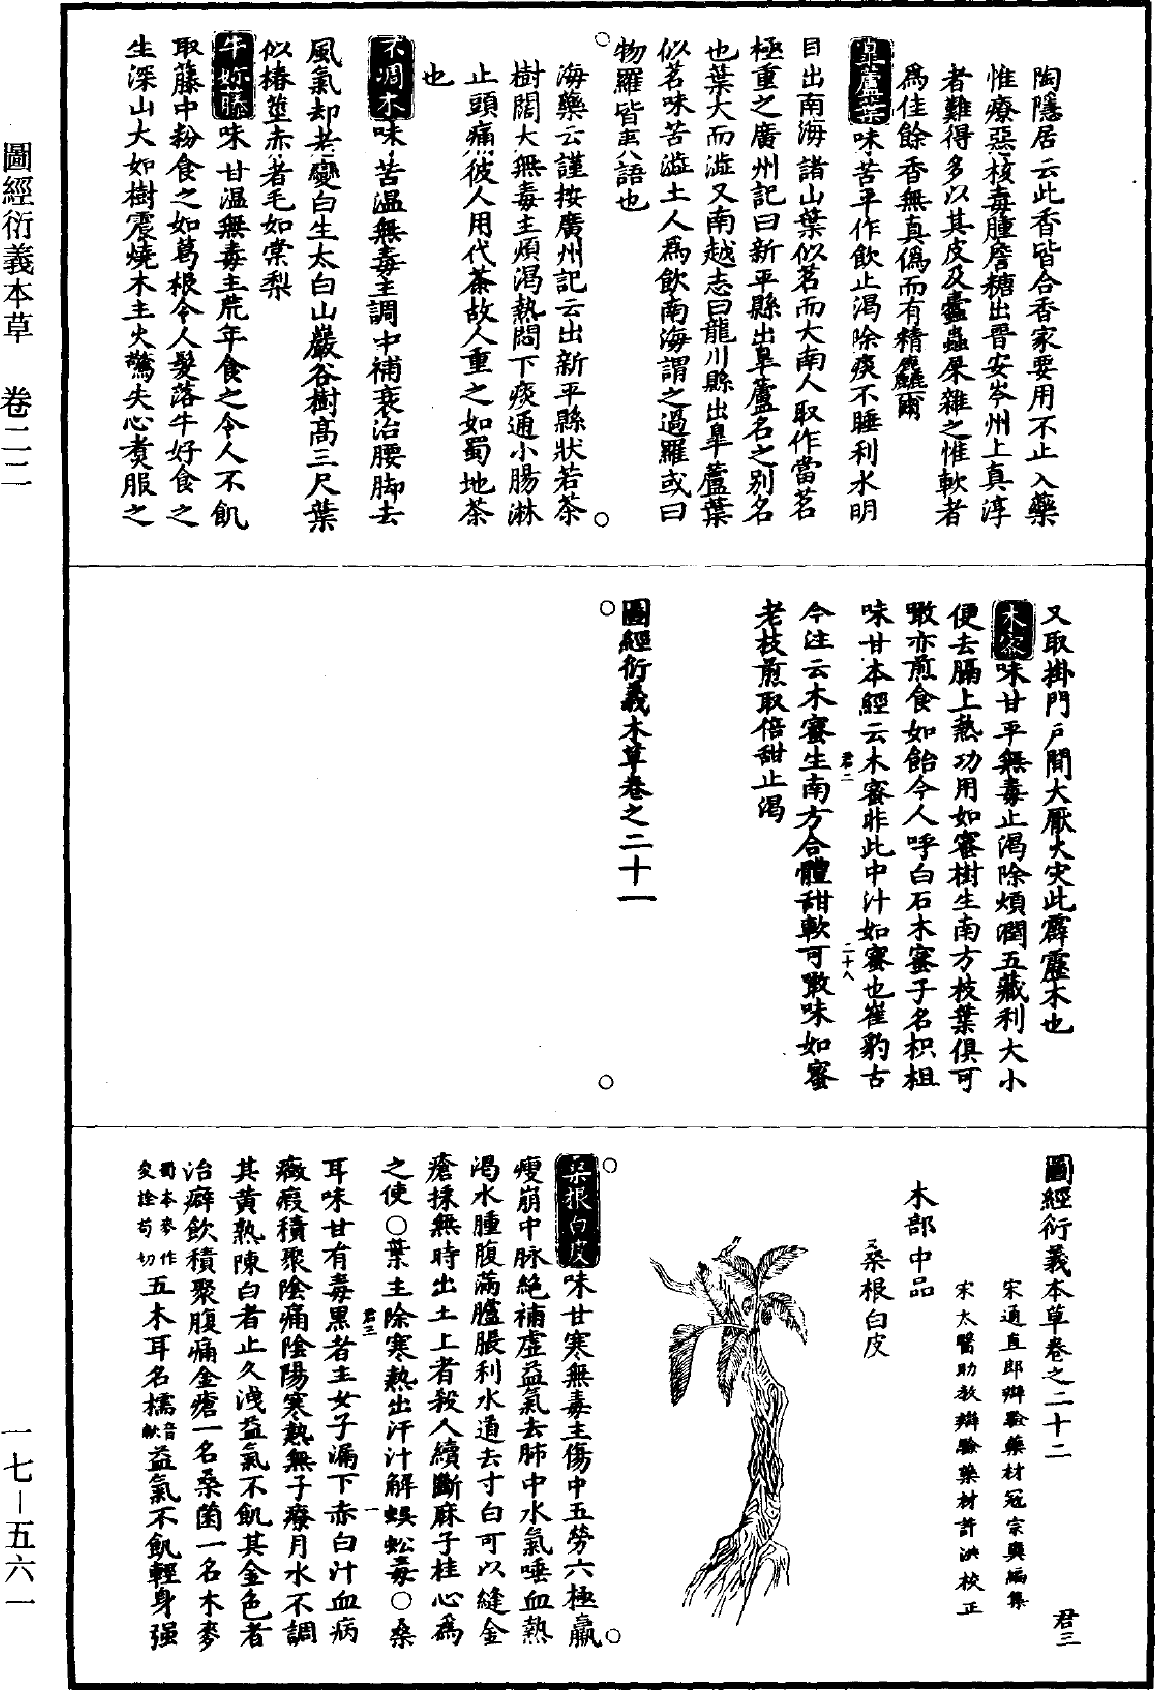 陶隱居云此香皆合香家要用不止入藥
惟療惡核毒腫詹糖出晋安岑州上真淳
者難得多以其皮及蠹蟲屎雜之惟軟者
爲佳餘香無真僞而有精麤爾
皐蘆葉味苦平作飲止渴除痰不睡利水明
目出南海諸山葉似茗而大南人取作當茗
極重之廣州記曰新平縣出皐蘆名之别名
也葉大而澁又南越志曰龍川縣出皐蘆葉
似茗味苦澁土人爲飲南海謂之過羅或曰
物羅皆夷語也
海藥云謹按廣州記云出新平縣狀若茶
樹闊大無毒主煩渴熱悶下痰通小腸淋
止頭痛彼人用代茶故人重之如蜀地茶
也
不凋木味苦温無毒主調中補衰治腰脚去
風氣却老變白生太白山巖谷樹高三尺葉
似椿莖赤者毛如棠梨
牛奶藤味甘温無毒主荒年食之令人不飢
取藤中粉食之如葛根令人髮落牛好食之
生深山大如樹震燒木主火驚失心煑服之
又取掛門戶間大厭火灾此霹靂木也
木蜜味甘平無毒止渴除煩潤五藏利大小
便去膈上熱功用如蜜樹生南方枝葉俱可
噉亦煎食如飴今人呼白石木蜜子名枳椇
味甘本經云木蜜非此中汁如蜜也崔豹古
君二
二十八
今注云木蜜生南方合體甜軟可噉味如蜜
老枝煎取倍甜止渴
圖經衍義本草卷之二十一
圖經衍義本草卷之二十二
君三
宋通直郎辯驗藥材冦宗奭編集
宋太醫助教辯驗藥材許洪校正
木部中品
桑根白皮
桑根白皮味甘寒無毒主傷中五勞六極羸
瘦崩中脉絶補虚益氣去肺中水氣唾血熱
渴水腫腹滿臚脹利水道去寸白可以縫金
瘡採無時出土上者殺人續斷麻子桂心爲
之使○葉主除寒熱出汗汁解蜈蚣毒○桑
君三
一
耳味甘有毒黒者主女子漏下赤白汁血病
癥瘕積聚陰痛陰陽寒熱無子療月水不調
其黄熟陳白者止久洩益氣不飢其金色者
治癖飲積聚腹痛金瘡一名桑菌一名木麥
蜀本麥作
㕙詮荀切
五木耳名檽
音
軟
益氣不飢輕身强
圖經衍義本草 卷二二
一七－五六一